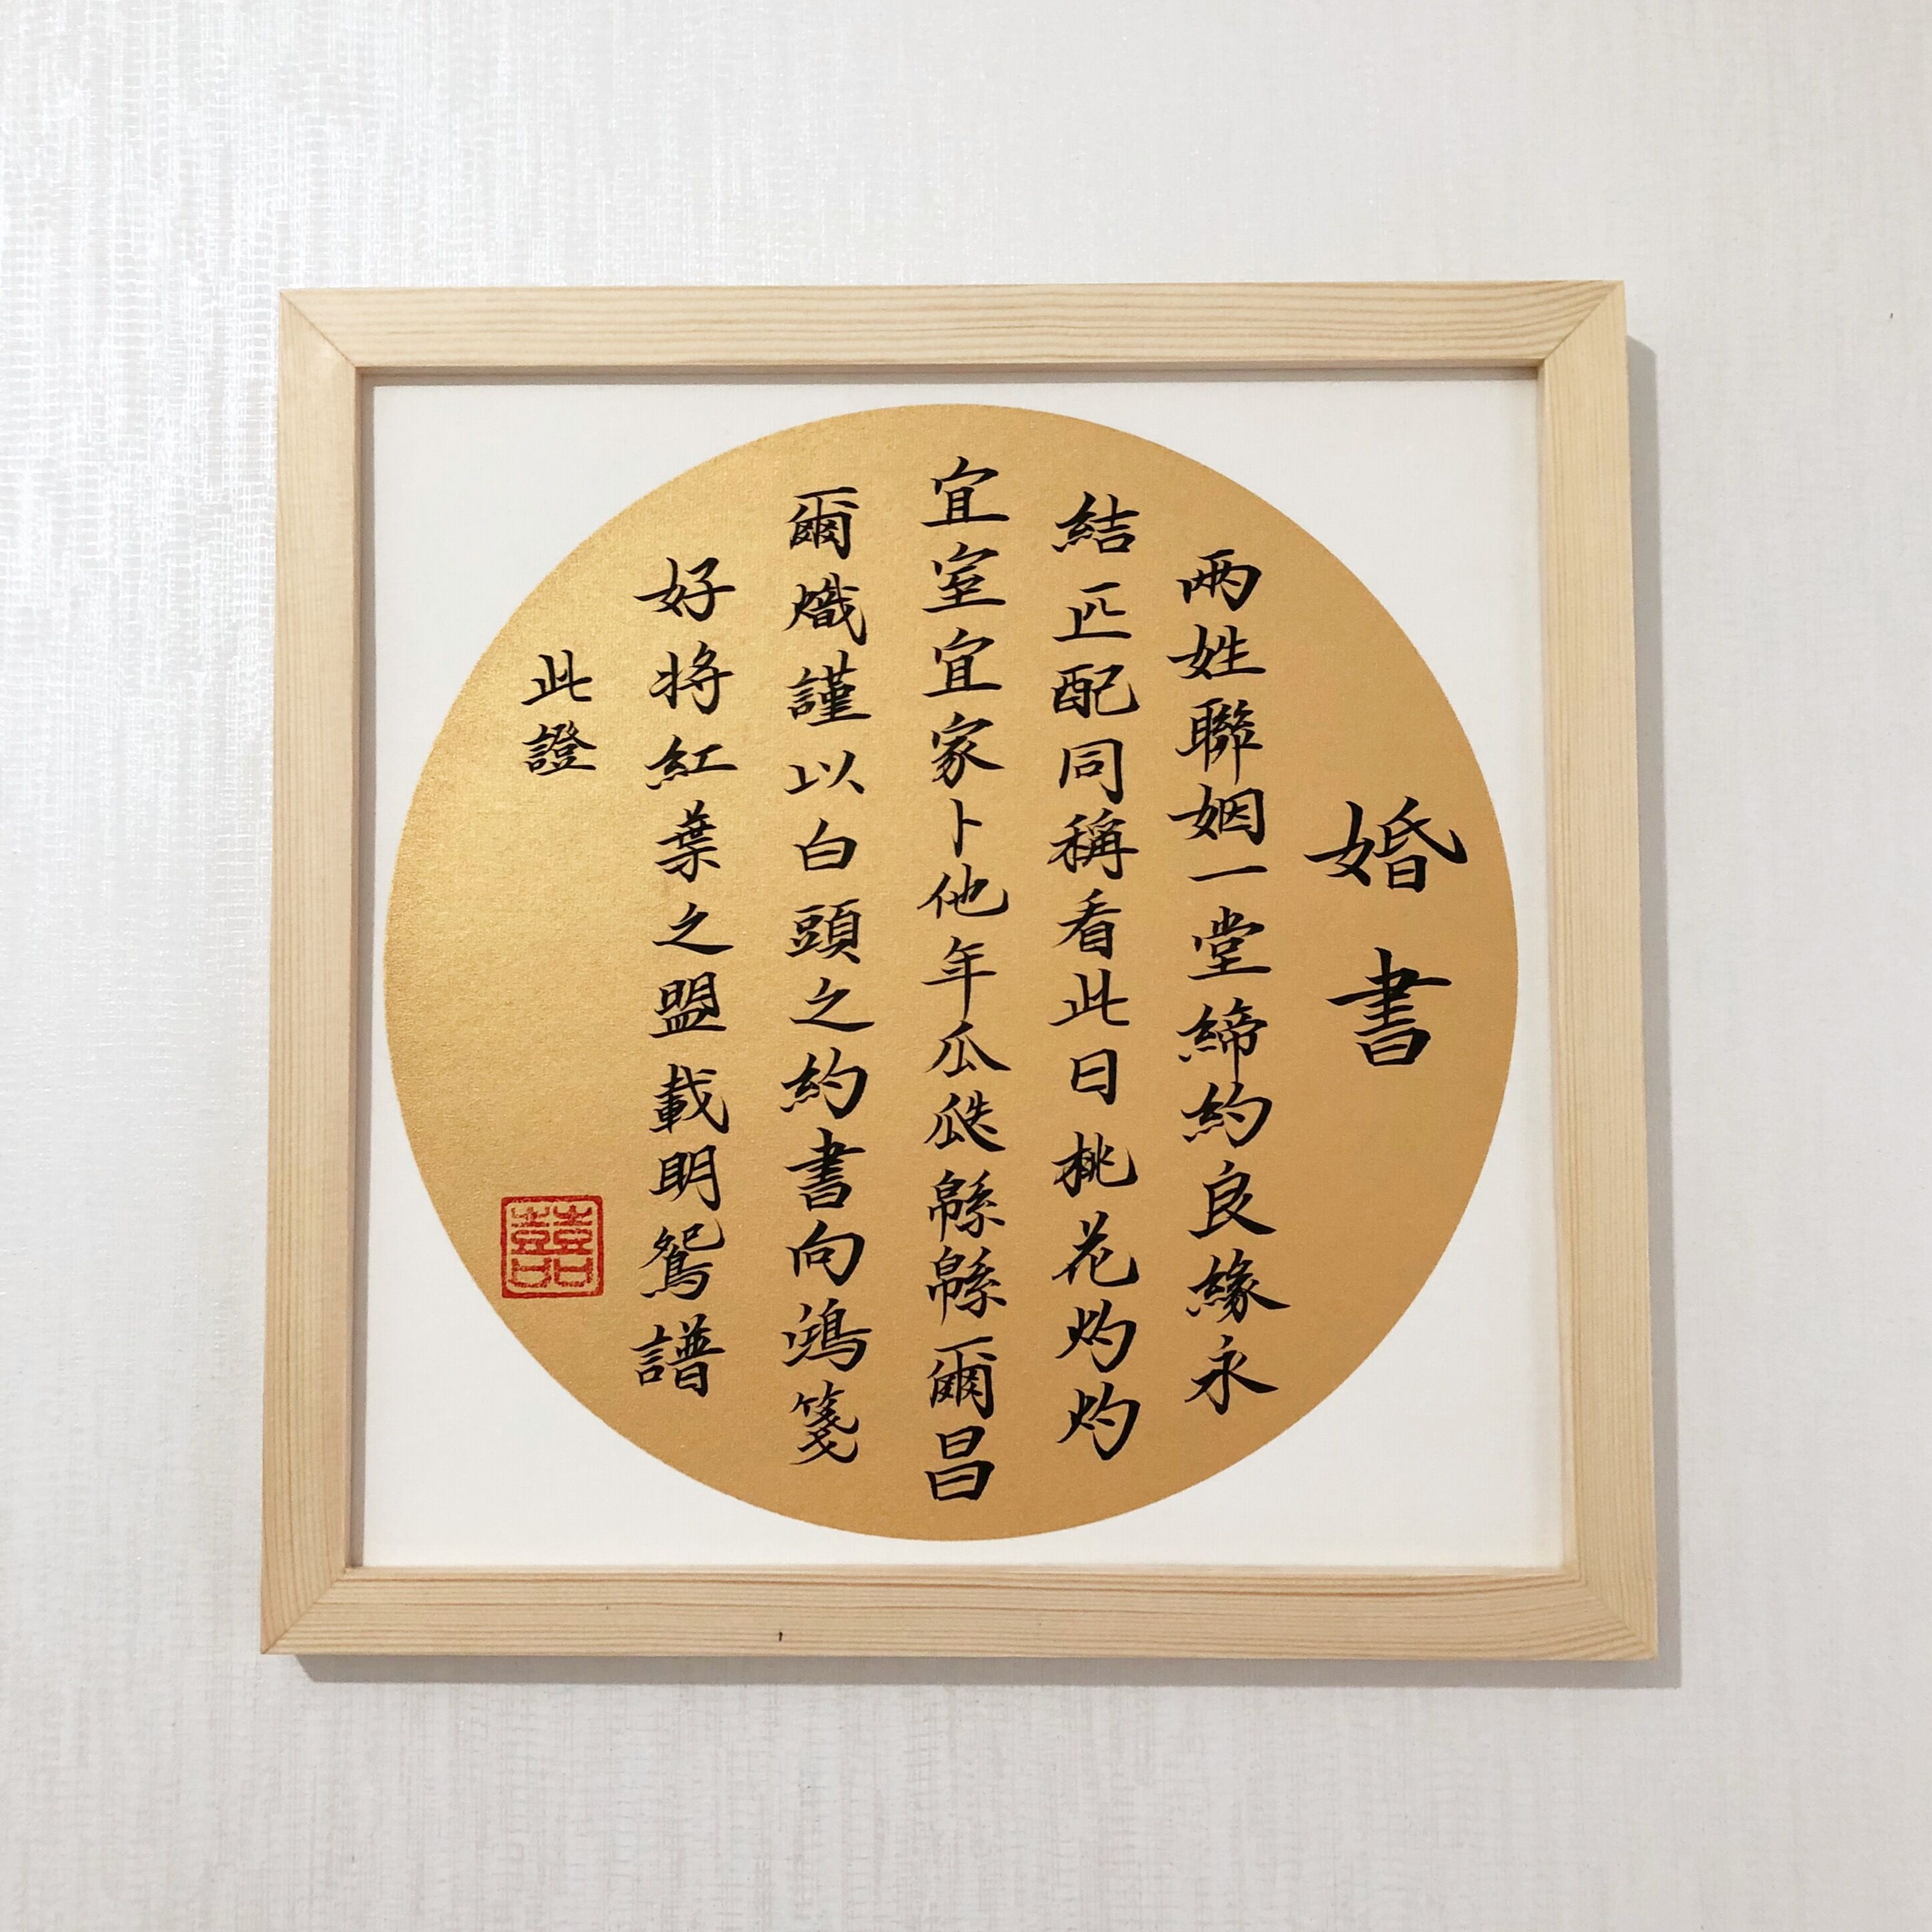 婚書
兩姓聯姻一堂締約良緣永
結匹配同稱看此日桃花灼灼
宜室宜家卜他年瓜瓞緜緜爾昌
爾熾謹以白頭之約書向鴻箋
好將紅葉之盟載明鴛譜
此證
囍